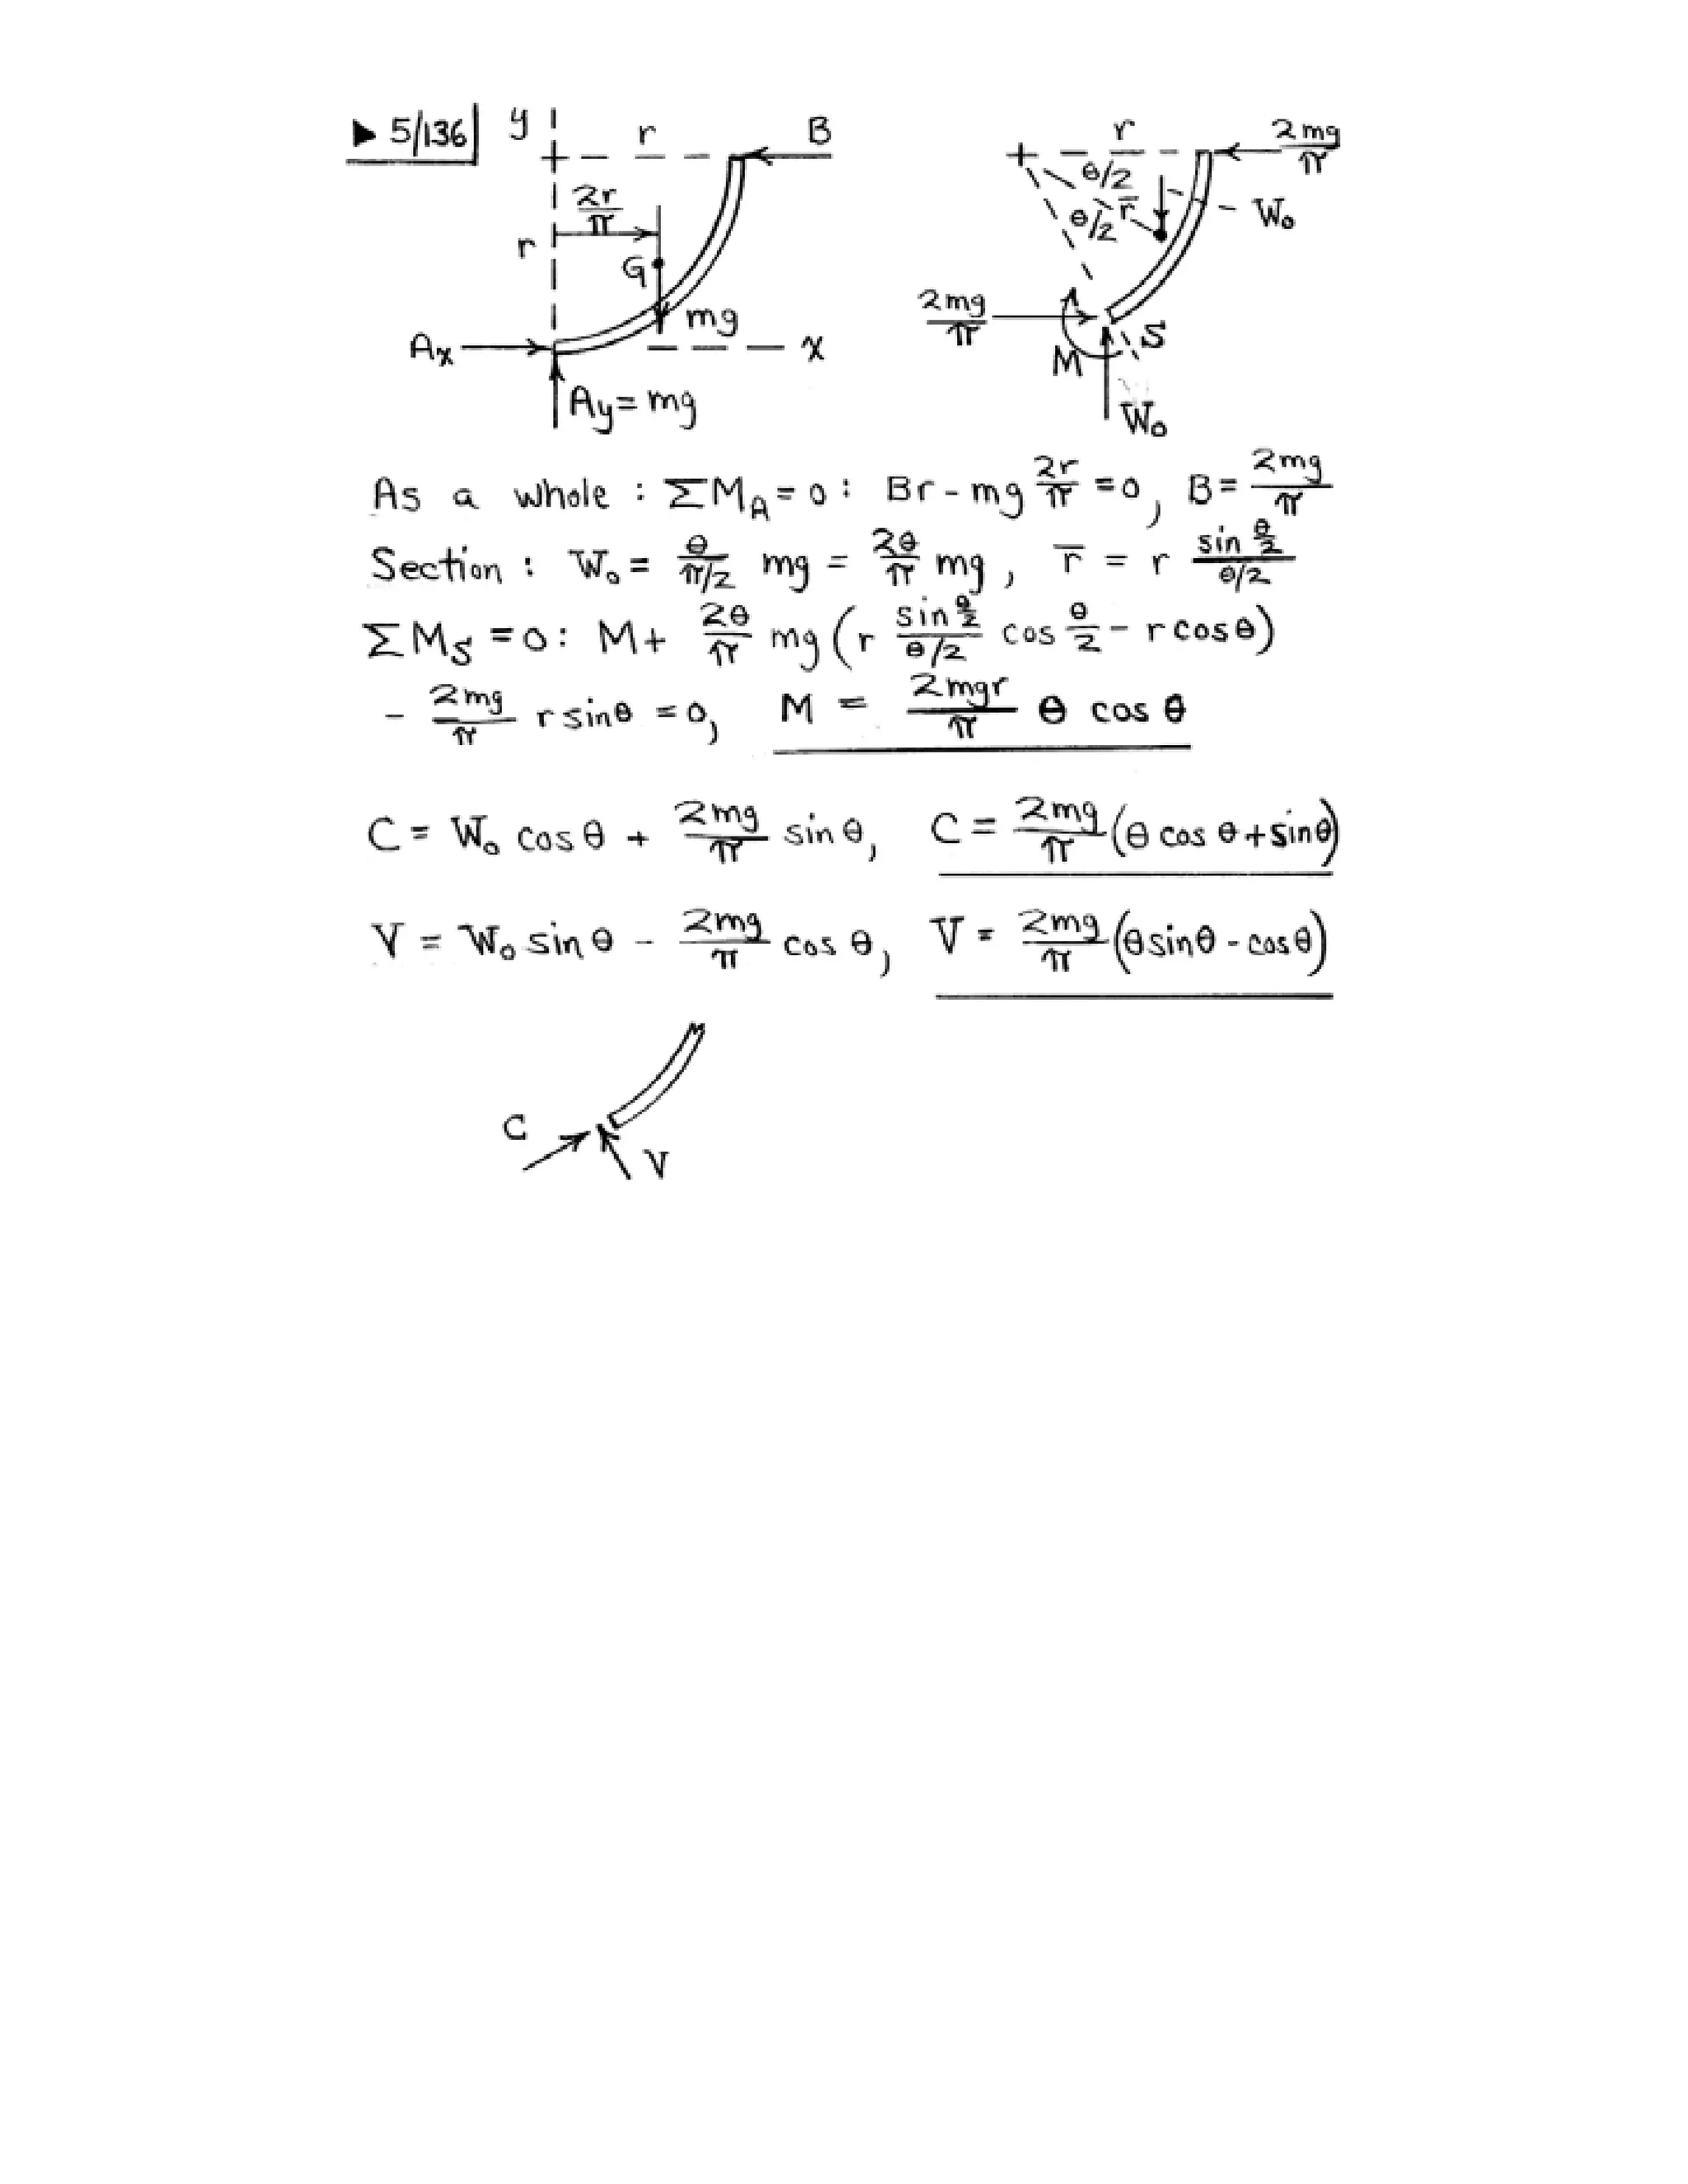 ▶ 5/136
y r B
2r/π
r
G
mg
Ax x
Ay = mg
r 2mg/π
θ/2
θ/2 r̄ W₀
2mg/π
M S
W₀
As a whole : ΣM_A = 0 : Br - mg 2r/π = 0, B = 2mg/π
Section : W₀ = θ/(π/2) mg = 2θ/π mg, r̄ = r sin θ/2 / θ/2
ΣM_S = 0 : M + 2θ/π mg (r sin θ/2 / θ/2 cos θ/2 - r cos θ)
- 2mg/π r sin θ = 0, M = 2mgr/π θ cos θ
C = W₀ cos θ + 2mg/π sin θ, C = 2mg/π (θ cos θ + sin θ)
V = W₀ sin θ - 2mg/π cos θ, V = 2mg/π (θ sin θ - cos θ)
C
V